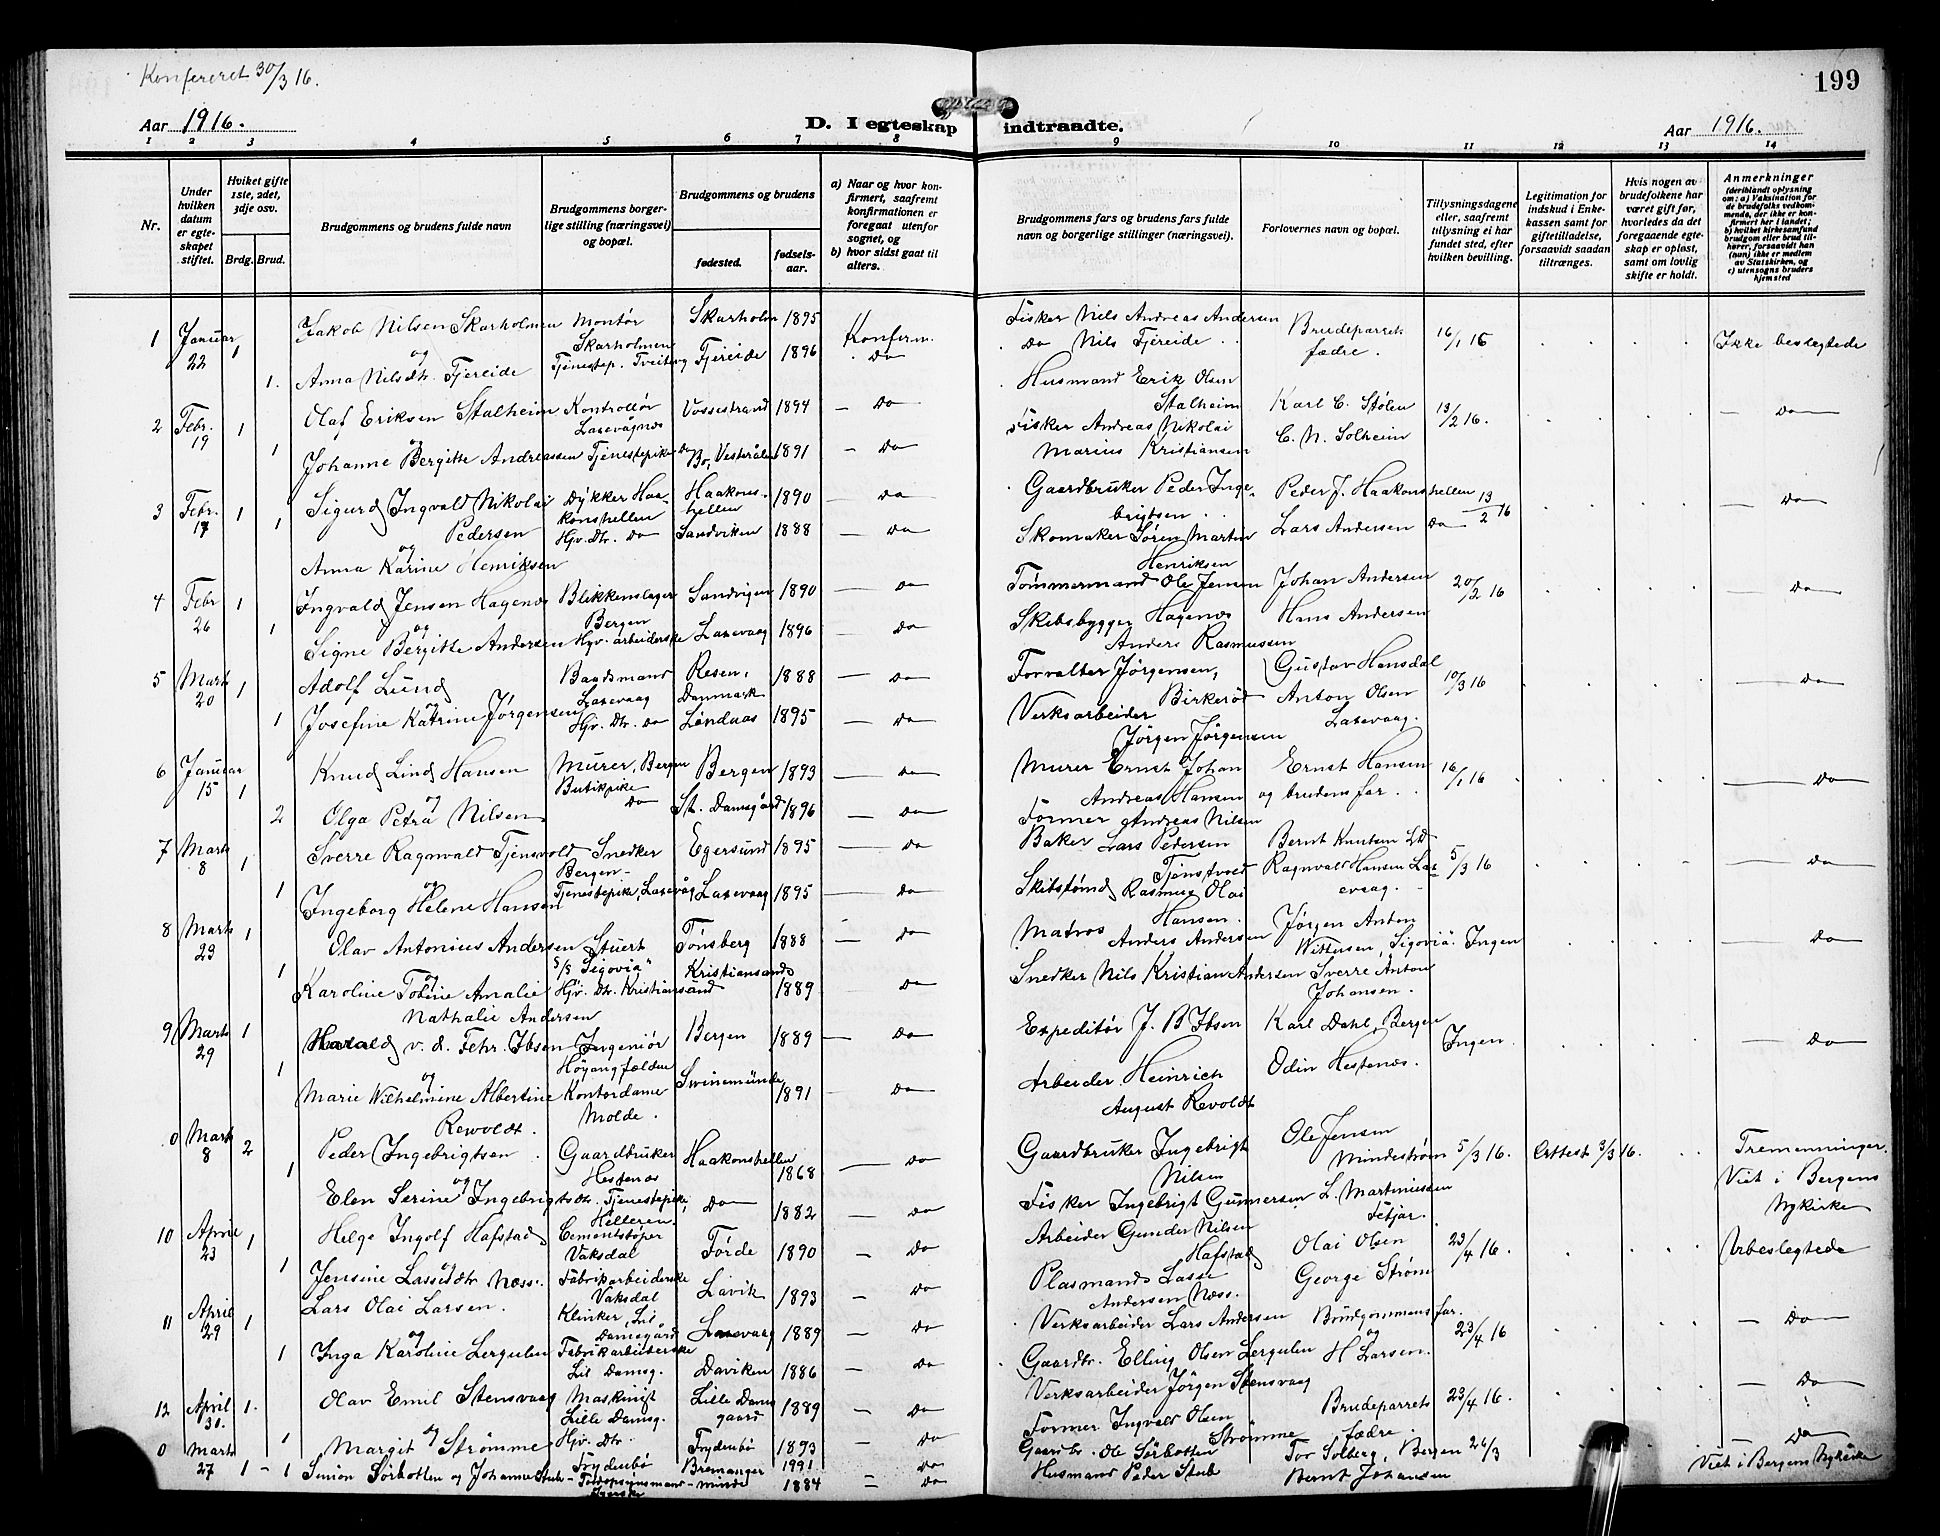 Konfereret 30/3 16.
199
Aar 1916.
D. I egteskap indtraadte.
Aar 1916.
1 2 3 4 5 6 7 8 9 10 11 12 13 14
Nr.
Under hvilken datum er egte-skapet stiftet.
Hviket gifte 1ste, 2det, 3dje osv.
Brdg. Brud.
Brudgommens og brudens fulde navn
Brudgommens borger-lige stilling (næringsvei) og bopæl.
Brudgommens og brudens
fødested.
fødsels-aar.
a) Naar og hvor kon-firmert, saafremt konfirmationen er foregaat utenfor sognet, og
b) hvor sidst gaat til alters.
Brudgommens fars og brudens fars fulde navn og borgerlige stillinger (næringsvei).
Forlovernes navn og bopæl.
Tillysningsdagene eller, saafremt tillysning ei har fundet sted, efter hvilken bevilling.
Legitimation for indskud i Enke-kassen samt for giftetilladelse, forsaavidt saadan tiltrænges.
Hvis nogen av brudefolkene har været gift før, hvorledes da det foregaaende egte-skap er opløst, samt om lovlig skifte er holdt.
Anmerkninger
(deriblandt oplysning om: a) Vaksination for de brudefolks vedkom-mende, der ikke er kon-firmert her i landet; b) hvilket kirkesamfund brudgom eller brud til-hører, forsaavidt han (hun) ikke er medlem av Statskirken, og c) utensogns bruders hjemsted
1 Januar 22 1 Jakob Nilsen Skarholmen Montør Skarholmen Skarholm 1895 Konfirm. Fisker Nils Andreas Andersen Brudeparrets fædre. 16/1 16 Ikke beslegtede
og
1. Anna Nilsdtr. Fjereide Tjenestep. Tveiterg Fjereide 1896 Do Do Nils Fjereide
2 Febr. 19 1 Olaf Eriksen Stalheim Kontrollør Laxevågnes Vossestrand 1894 — Do Husmand Erik Olsen Stalheim Karl C. Stølen 13/2 16. — Do —
og
1 Johanne Bergitte Andreassen Tjenestepike Do Bø, Vesterålen 1891 — Do Fisker Andreas Nikolai Marius Kristiansen C. N. Solheim
3 Febr. 17 1 Sigurd Ingvald Nikolai Pedersen Dykker Haakonshellen Haakonshellen 1890 — Do Gaardbruker Peder Ingebrigtsen Peder J. Haakonshellen 13/2 16 Do
og
1 Anna Karine Henriksen Hjv. Dtr. Do Sandviken 1888 — Do Skomaker Søren Martin Henriksen Lars Andersen Do
4 Febr 26 1 Ingvald Jensen Hagenæs Blikkenslager Bergen Sandvigen 1890 — Do Tømmermand Ole Jensen Hagenæs Johan Andersen 20/2 16 — Do
og
1 Signe Bergitte Andersen Hjv. arbeiderske Laxevaag 1896 — Do Skibsbygger Anders Rasmussen Hans Andersen
5 Marts 20 1 Adolf Lund Baadsmand Laxevaag Resen, Danmark 1888 — Do Forvalter Jørgensen, Birkerød Gustav Hansdal 10/3 16 — Do
og
1 Josefine Katrine Jørgensen Hjv. Dtr. Do Løndnæs 1895 — Do Verksarbeider Jørgen Jørgensen Anton Olsen Laxevaag.
6 Januar 15 1 Knud Lind Hansen Murer, Bergen Bergen 1893 — Do Murer Ernst Johan Andreas Hansen Ernst Hansen 16/1 16 — Do
og
2 Olga Petra Nilsen Butikpike Do St. Damsgård 1896 — Do Former Andreas Nilsen og brudens far.
7 Marts 8 1 Sverre Ragnvald Tjensvold Snedker Bergen Egersund 1895 — Do Baker Lars Pedersen Tjensvold Bernt Knutsen 5/3 16 — Do
og
1 Ingeborg Helene Hansen Tjenestepik, Laxevåg Laxevaag 1895 — Do Skibstømd Rasmus Olai Hansen. Ragnvald Hansen Laxevaag.
8 Marts 23 1 Olav Antonius Andersen Stuert S/S "Sigovia" Tønsberg 1888 — Do Matros Anders Andersen Jørgen Anton Wittusen, "Sigovia" Ingen — Do
og
1 Karoline Tobine Amalie Nathalie Andersen Hjv. Dtr. Kristiansand Kristiansand 1889 — Do Snedker Nils Kristian Andersen Sverre Anton Johansen.
9 Marts 29 1 Harald v. d. Fehr Ibsen Ingeniør Høyangfælden Bergen 1889 — Do Expeditør J. B. Ibsen Karl Dahl, Bergen Ingen — Do
og
1 Marie Wilhelmine Albertine Rewoldt. Kontordame Molde. Swinemünde 1891 — Do Arbeider Heinrich August Revoldt Odin Hestenæs.
0 Marts 8 2 Peder Ingebrigtsen Gaardbruker Hestenæs Haakonshellen 1868 — Do Gaardbruker Ingebrigt Nilsen Ole Jensen Mindestrøm 5/3 16. Attest 3/3 16. Tremenninger. Viet i Bergens Nykirke
og
1 Elen Serine Ingebrigtsdtr. Tjenestepike, Helleren. Do 1882 — Do Fisker Ingebrigt Gunnersen L. Martinussen Fitjar.
10 April 23 1 Helge Ingolf Hafstad Cementstøper Vaksdal Førde 1890 — Do Arbeider Gunder Nilsen Hafstad Olai Olsen 23/4 16. Ubeslegtede
og
1 Jensine Lassedtr Næss. Fabrikarbeiderske Vaksdal Lavik 1893 — Do Plasmand Lasse Andersen Næss. George Strøm
11 April 29 1 Lars Olai Larsen. Klinker, Lil Damsgård Laxevaag 1889 — Do Verksarbeider Lars Andersen Brudgommens far. 23/4 16 — Do
og
1 Inga Karoline Lergulen Fabrikarbeiderske Lil Damsg. Daviken 1886 — Do Gaardbr. Elling Olsen Lergulen og H Larsen.
12 April 30. 1. Olav Emil Stensvaag Maskinist Lille Damsg. Lille Damsgaard 1889 — Do Verksarbeider Jørgen Stensvaag Brudeparrets fædre. 23/4 16. — Do
og
1 Margit Strømme Hjv. Dtr. Frydenbø Frydenbø 1893 — Do Former Ingvald Olsen Strømme
0 Marts 27 1 - 1 Simon Sørbotten og Johanne Stub Bremanger 1991 Do Gaardbr. Ole Sørbotten Tor Solberg, Bergen 26/3 — Do
1884 = Do Husmand Peder Stub Bernt Johansen Viet i Bergens Nykirke